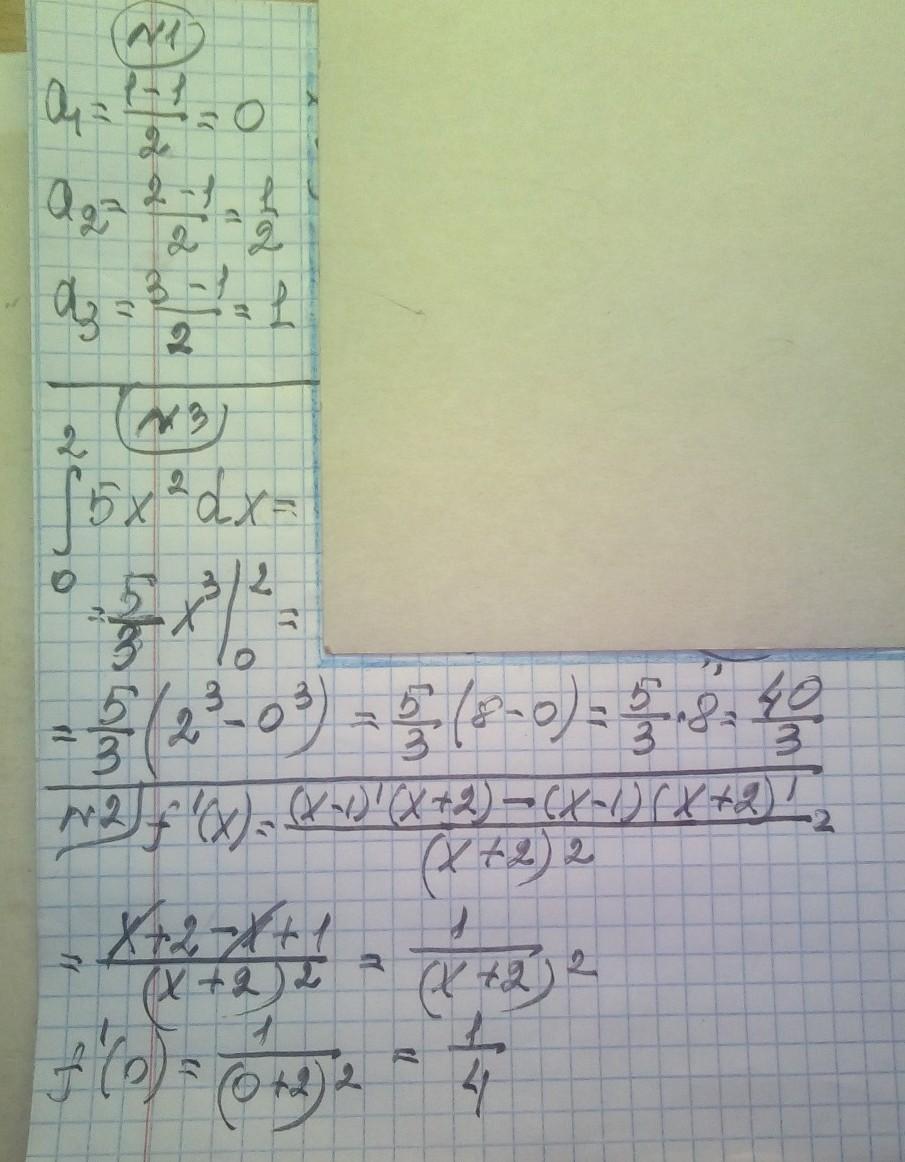 №1
a₁ = (1-1)/2 = 0
a₂ = (2-1)/2 = 1/2
a₃ = (3-1)/2 = 1
№3
∫₀² 5x² dx =
= 5/3 x³ |₀² =
= 5/3 (2³ - 0³) = 5/3 (8-0) = 5/3 · 8 = 40/3
№2 f'(x) = ((x-1)'(x+2) - (x-1)(x+2)')/(x+2)² =
= (x+2-x+1)/(x+2)² = 1/(x+2)²
f'(0) = 1/(0+2)² = 1/4